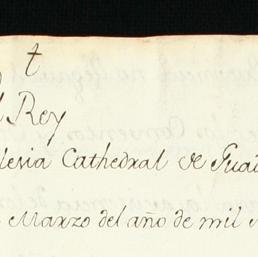 t
Rey
lesia Cathedral de Guat
Marzo del año de mil